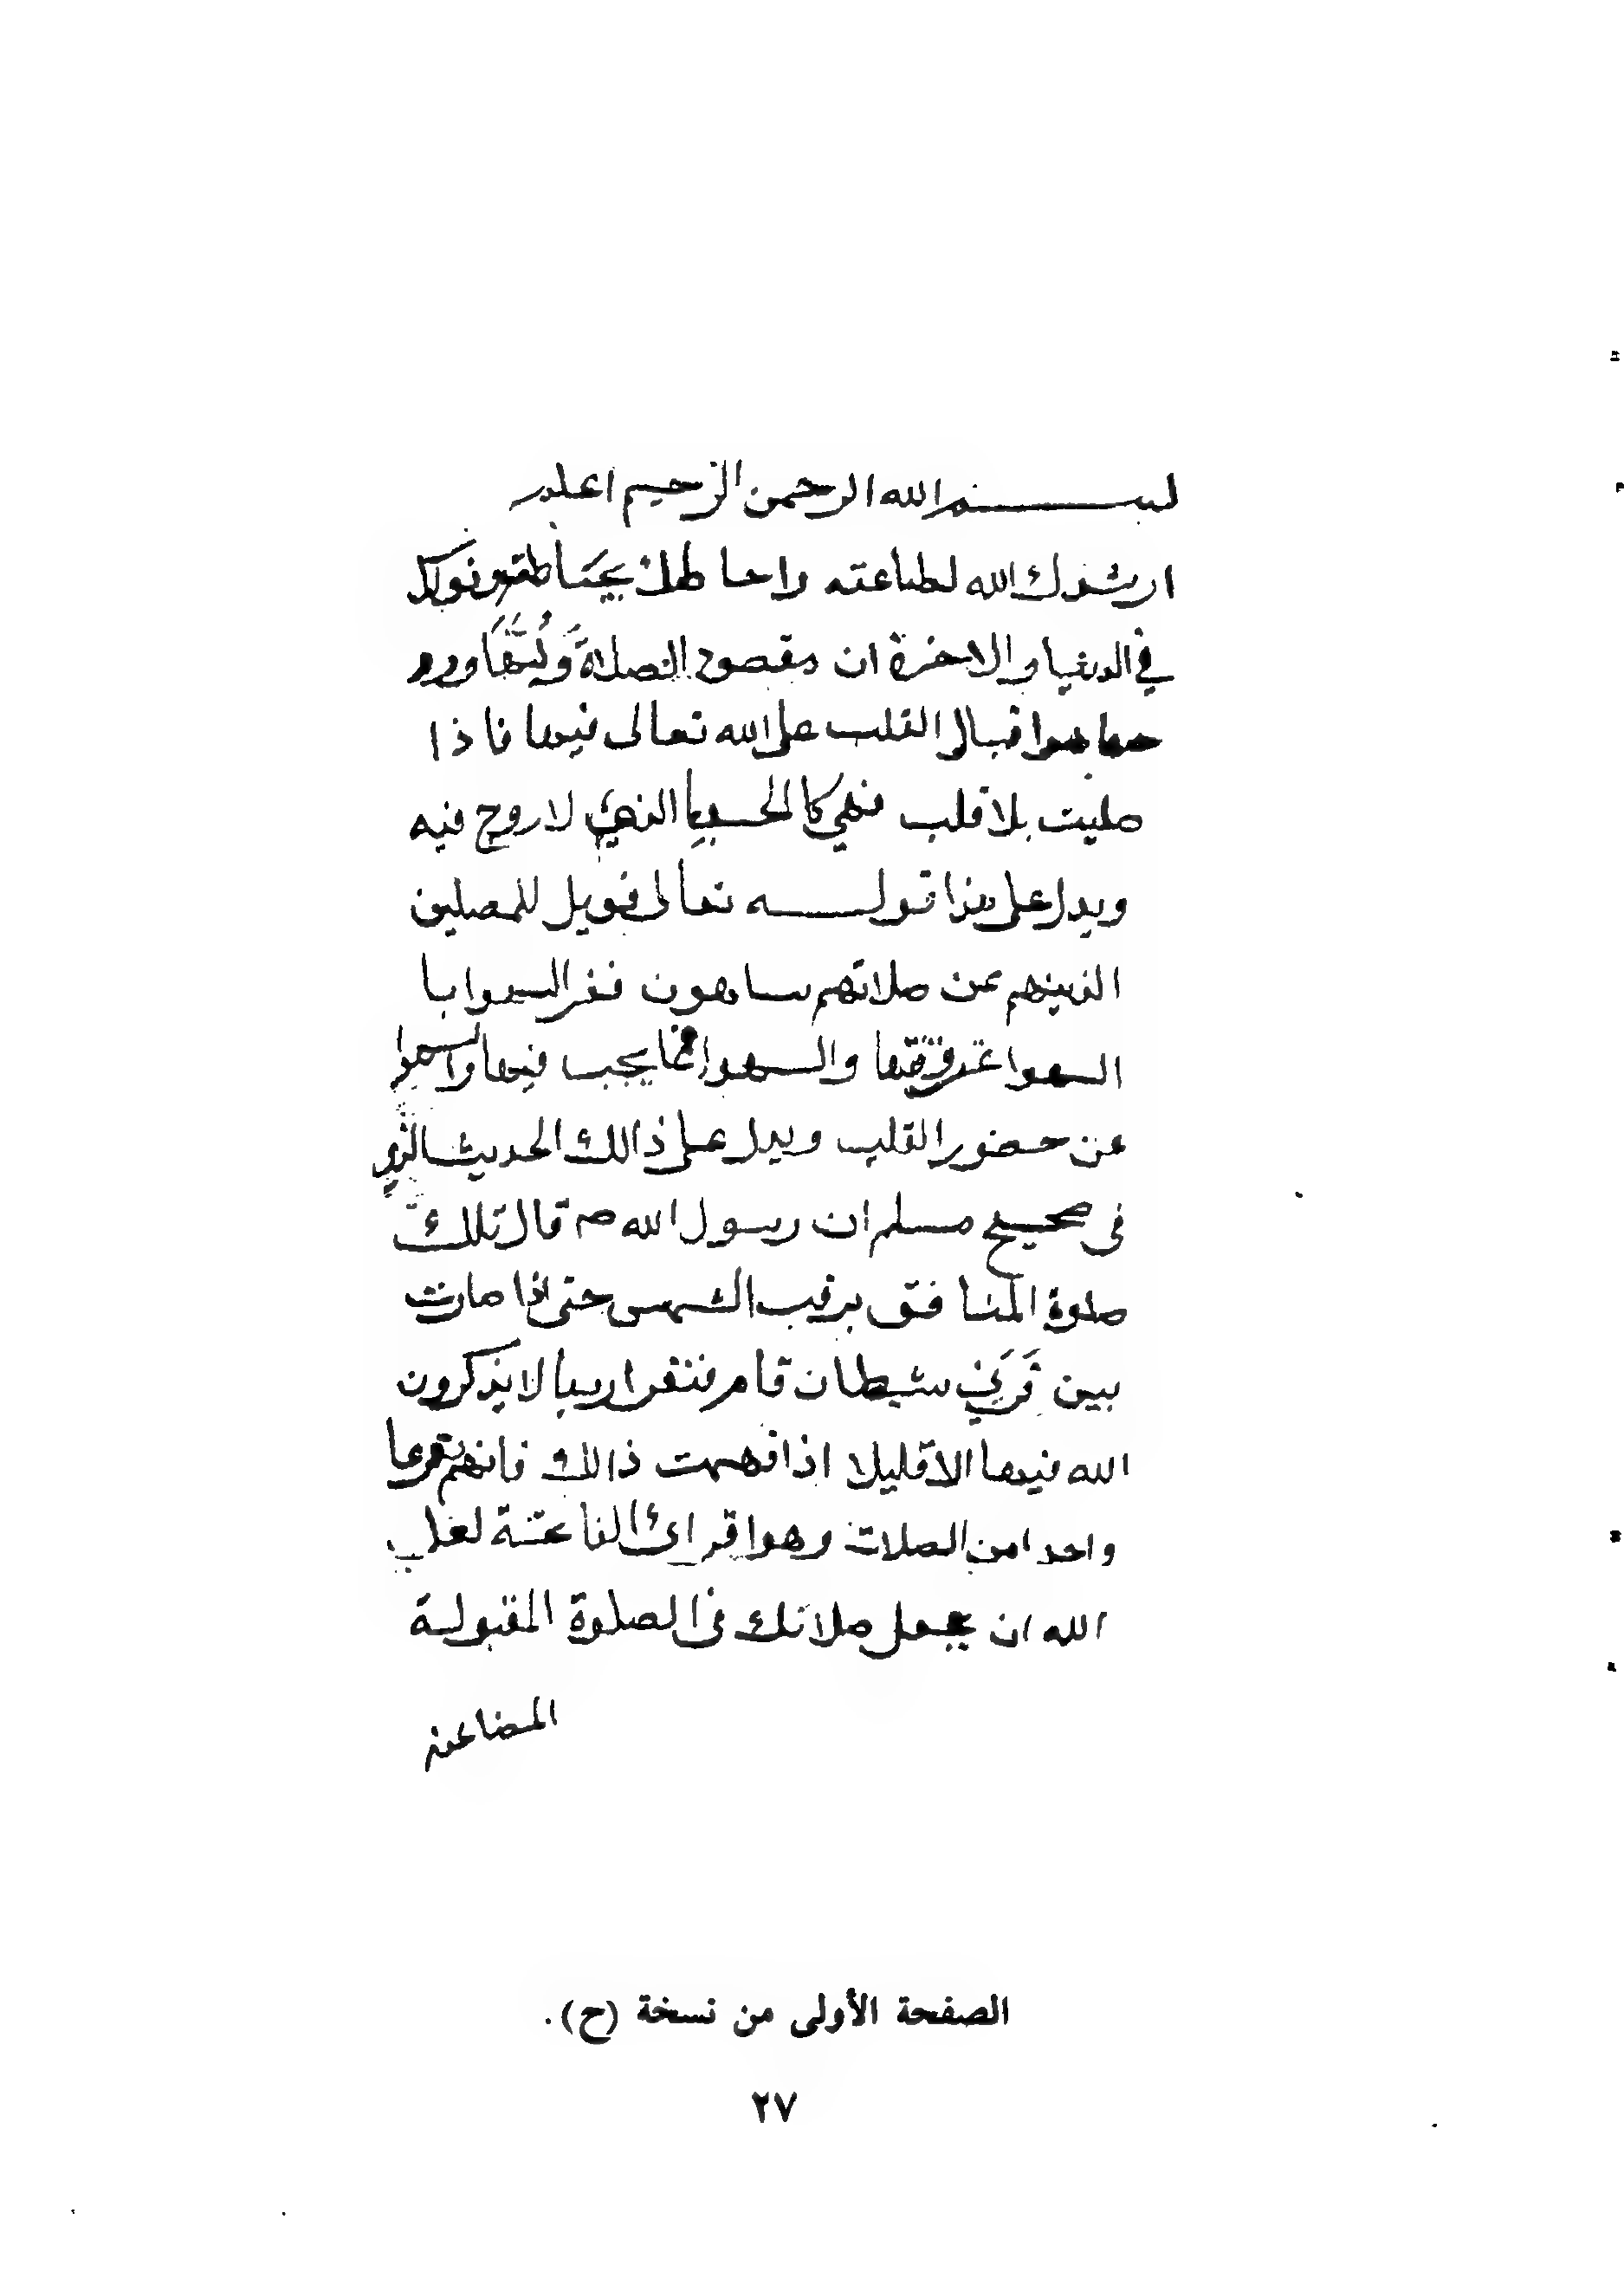 بسم الله الرحمن الرحيم اعلم
ارشدك الله لطاعته واحاطك
في الدنيا والاخرة ان مقصود الصلاة
اقبال القلب على الله تعالى فيها فاذا
صليت بلا قلب فهي كالجسد الذي لا روح فيه
ويدل على هذا قوله تعالى فويل للمصلين
الذينهم عن صلاتهم ساهون ففسر السهوا با
السهوا عن وقتها والسهوا عما يجب فيها والسهوا
عن حضور القلب ويدل على ذالك الحديث الذي
فى صحيح مسلم ان رسول الله صم قال تلك
صلوة المنافق يرقب الشمس حتى اذا صارت
بين قرني شيطان قام فنقر اربعا لا يذكرون
الله فيها الا قليلا اذا فهمت ذالك فافهم
واحدا من الصلات وهوا قرائ الفاتحة لعل
الله ان يجعل صلاتك فى الصلوة المقبولة
المضاعفه
الصفحة الأولى من نسخة (ح).
٢٧